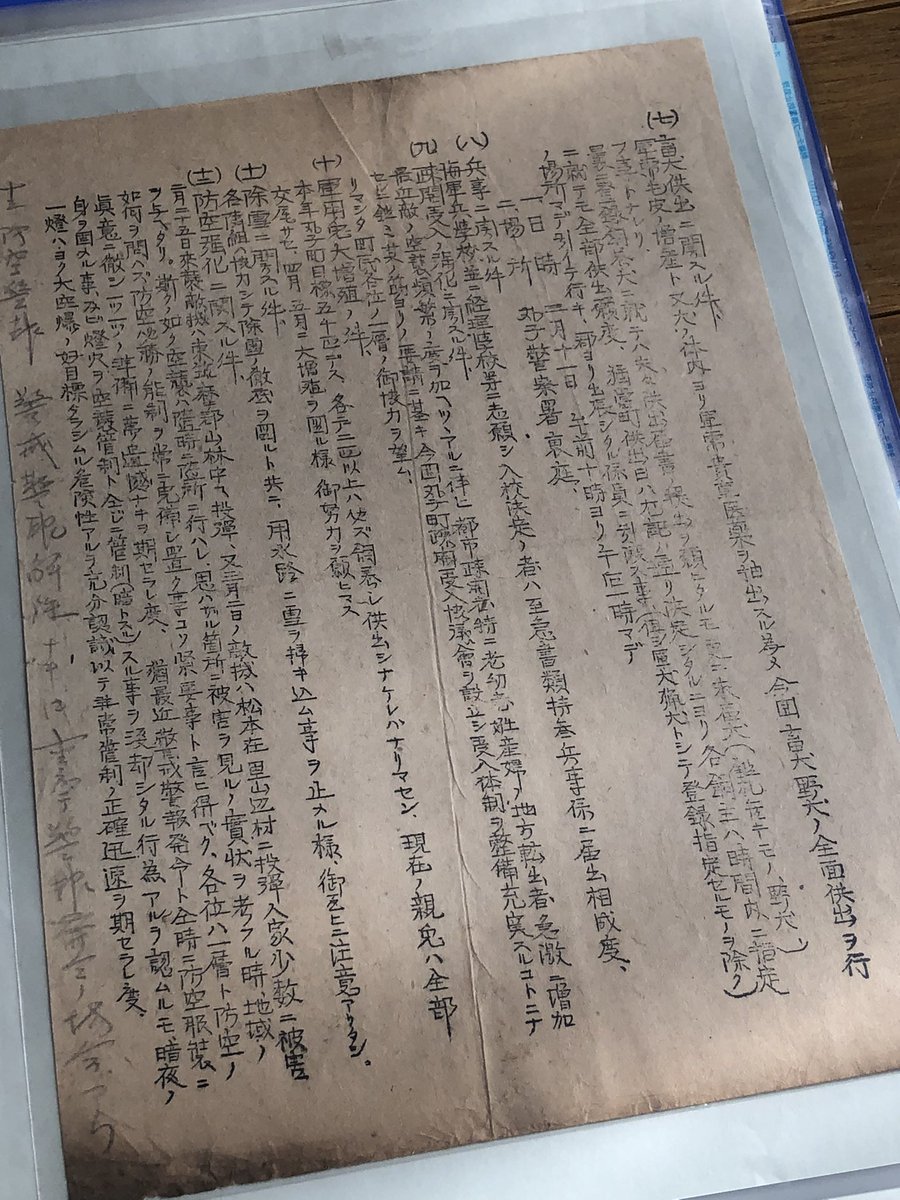 (七)畜犬供出ニ関スル件、
軍需毛皮ノ増産ト又犬ノ体内ヨリ軍需貴重医薬ヲ抽出スル為メ今回畜犬野犬ノ全面供出ヲ行
フ事トナレリ
ニ就テモ全部供出願度、猶当町供出日ハ左記ノ通リ決定シタルニヨリ各飼主ハ時間内ニ指定
ノ場所マデ引イテ行キ、郡ヨリ出張シタル係員ニ引渡ス事(但シ軍犬猟犬トシテ登録指定セルモノヲ除ク)
一、日時 三月十一日 午前十時ヨリ午后一時マデ
二、場所 丸子警察署裏庭、
(八)兵事ニ関スル件
海軍兵学校並ニ経理学校等ニ志願シ入校決定ノ者ハ至急書類持参兵事係ニ届出相成度、
(九)疎開受入ノ消化ニ関スル件、
最近敵ノ空襲頻繁ノ度ヲ加ヘツヽアルニ伴ヒ都市疎開者特ニ老幼者妊産婦ノ地方転出者急激ニ増加
セルニ鑑ミ其ノ筋ヨリノ要請ニ基キ今回丸子町疎開受入協議會ヲ設立シ受入体制ヲ整備充実スルコトニナ
リマシタ町民各位ノ一層ノ御協力ヲ望ム、
(十)軍用兎大増殖ノ件、
本年丸子町目標五千匹デス、各戸ニ二匹以上ハ必ズ飼養シ供出シナケレバナリマセン、現在ノ親兎ハ全部
交尾サセ四月五月ニ大増殖ヲ図ル様御努力ヲ願ヒマス
(十一)除雪ニ関スル件、
各隣組ハ協力シテ除雪ノ徹底ヲ図ルト共ニ、用水路ニ雪ヲ掃キ込ム事ヲ止メル様、御互ヒニ注意アリタシ。
(十二)防空強化ニ関スル件、
二月二十五日来襲敵機ハ東筑摩郡山林中ヘ投弾、又三月二日ノ敵機ハ松本在里山辺村ニ投弾人家少数ニ被害
ヲ与ヘタリ。斯クノ如ク空襲ハ随時ニ随所ニ行ハレ思ハザル箇所ニ被害ヲ見ルノ實状ヲ考フル時、地域ノ
如何ヲ問ハズ防空必勝ノ態制ヲ常ニ完備シ置ク事コソ緊要事ト言ヒ得ベク、各位ハ一層ト防空ノ
真意ニ徹シ一ツ一ツノ準備ニ夢遺憾ナキヲ期セラレ度、猶最近警戒警報発令ト全時ニ防空服装ニ
身ヲ固スル事及ビ燈火ヲ空襲管制ト全ジニ管制(暗トスル)スル事ヲ没却シタル行為アルヲ認ムルモ、暗夜ノ
一燈ハヨク大空爆ノ好目標タラシムル危険性アルヲ充分認識以テ非常管制ノ正確迅速ヲ期セラレ度、
防空警報 警戒警報解除